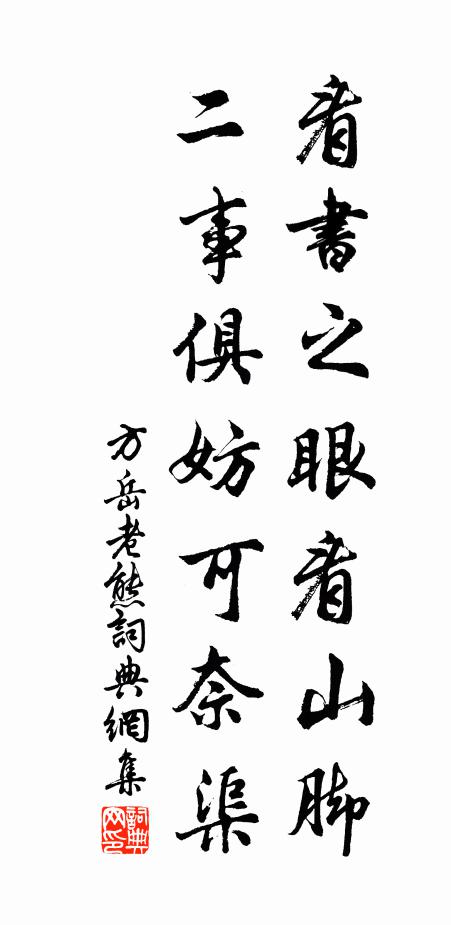 看書之眼看山脚
二事俱妨可奈渠
方岳老熊詞典網集
詞典网印